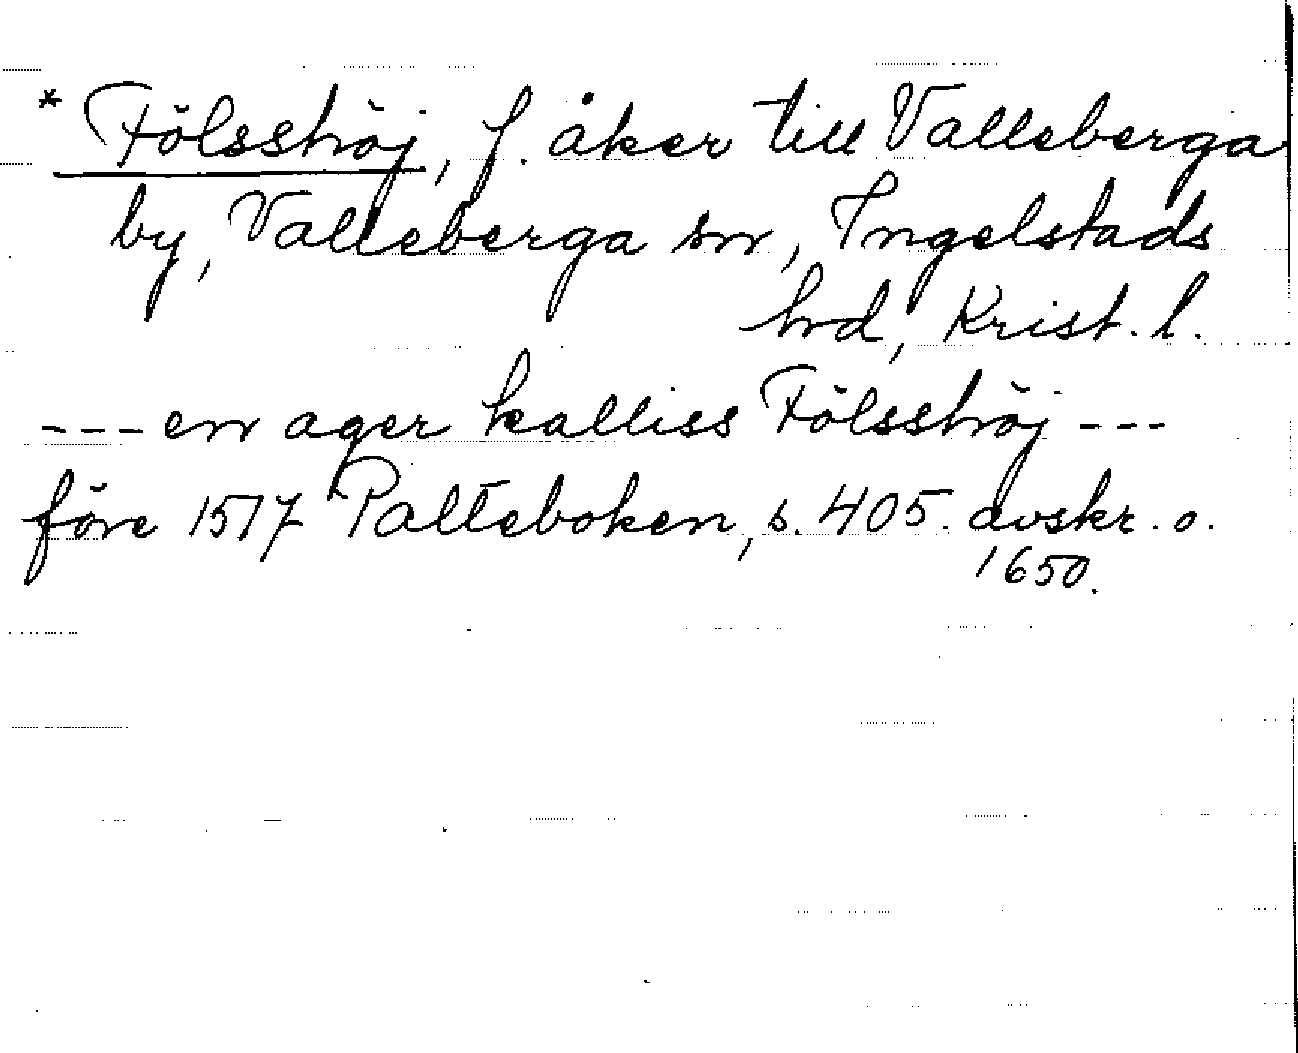 * Fölsshöj, f. åker till Valleberga
by, Valleberga sn, Ingelstads
hd, Krist. l.
--- en ager kalliss Fölsshöj ---
före 1517 Palteboken, s. 405. avskr. o.
1650.